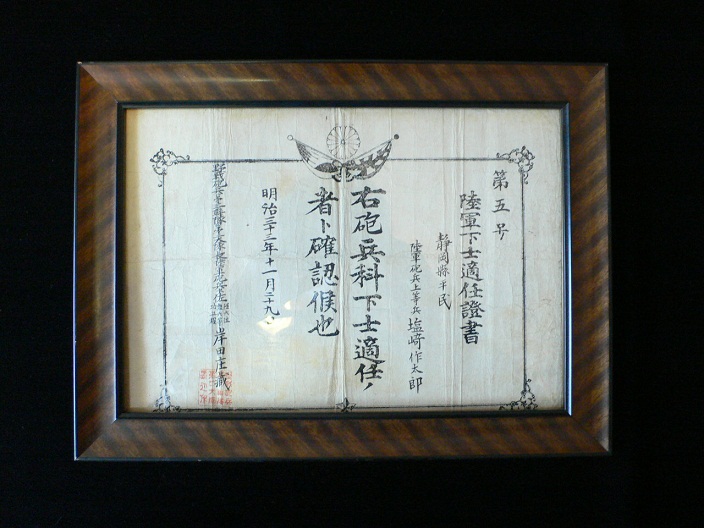 第五号
陸軍下士適任證書
静岡縣平民
陸軍砲兵上等兵 塩﨑作太郎
右砲兵科下士適任ノ
者ト確認候也
明治三十三年十一月二十九日
岸田庄藏